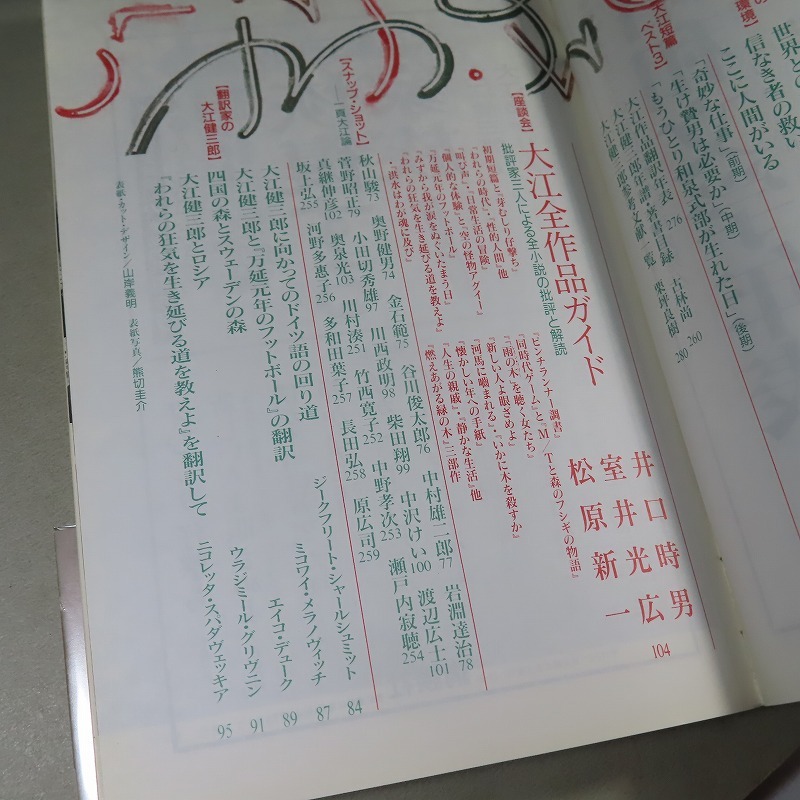 の
環境】
世界と
信なき者の救い
ここに人間がいる
大江短篇
ベスト3】
「奇妙な仕事」(前期)
「生け贄男は必要か」(中期)
「もうひとり和泉式部が生れた日」(後期)
大江作品翻訳年表 276
大江健三郎年譜・著書目録 古林尚 260
大江健三郎参考文献一覧 栗坪良樹 280
【座談会】
大江全作品ガイド
批評家三人による全小説の批評と解読
井口時男
室井光広
松原新一
104
初期短篇と『芽むしり仔撃ち』
『われらの時代』・『性的人間』他
『叫び声』・『日常生活の冒険』
『個人的な体験』と『空の怪物アグイー』
『万延元年のフットボール』
『みずから我が涙をぬぐいたまう日』
『われらの狂気を生き延びる道を教えよ』
『洪水はわが魂に及び』
『ピンチランナー調書』
『同時代ゲーム』と『M/Tと森のフシギの物語』
『「雨の木」を聴く女たち』
『新しい人よ眼ざめよ』・『いかに木を殺すか』
『河馬に嚙まれる』
『懐かしい年への手紙』
『人生の親戚』・『静かな生活』他
『燃えあがる緑の木』三部作
【スナップ・ショット】
——一頁大江論
秋山駿73 奥野健男74 金石範75 谷川俊太郎76 中村雄二郎77 岩淵達治78
菅野昭正79 小田切秀雄97 川西政明98 柴田翔99 中沢けい100 渡辺広士101
真継伸彦102 奥泉光103 川村湊251 竹西寛子252 中野孝次253 瀬戸内寂聴254
坂上弘255 河野多惠子256 多和田葉子257 長田弘258 原広司259
【翻訳家の
大江健三郎】
大江健三郎に向かってのドイツ語の回り道 ジークフリート・シャールシュミット 84
大江健三郎と『万延元年のフットボール』の翻訳 ミコワイ・メラノヴィッチ 87
四国の森とスウェーデンの森 エイコ・デューク 89
大江健三郎とロシア ウラジミール・グリヴニン 91
『われらの狂気を生き延びる道を教えよ』を翻訳して ニコレッタ・スパダヴェッキア 95
表紙・カット・デザイン/山岸義明 表紙写真/熊切圭介